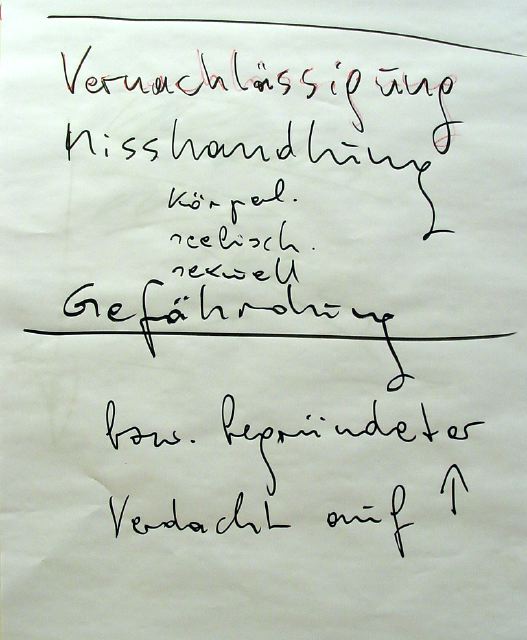 Vernachlässigung
Misshandlung
körperl.
seelisch.
sexuell
Gefährdung
bzw. begründeter
Verdacht auf ↑